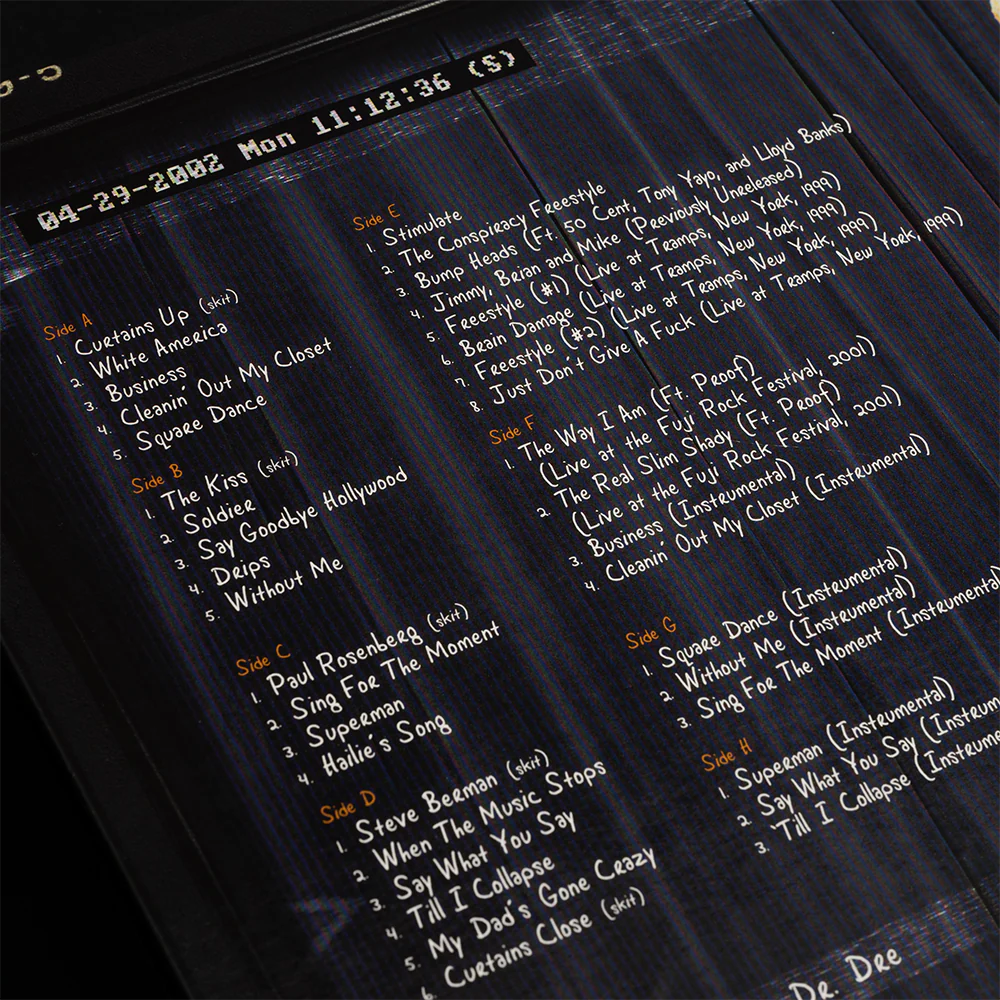 04-29-2002 Mon 11:12:36 (S)
Side A
1. Curtains Up (skit)
2. White America
3. Business
4. Cleanin' Out My Closet
5. Square Dance
Side B
1. The Kiss (skit)
2. Soldier
3. Say Goodbye Hollywood
4. Drips
5. Without Me
Side C
1. Paul Rosenberg (skit)
2. Sing For The Moment
3. Superman
4. Hailie's Song
Side D
1. Steve Berman (skit)
2. When The Music Stops
3. Say What You Say
4. Till I Collapse
5. My Dad's Gone Crazy
6. Curtains Close (skit)
Side E
1. Stimulate
2. The Conspiracy Freestyle
3. Bump Heads (Ft. 50 Cent, Tony Yayo, and Lloyd Banks)
4. Jimmy, Brian and Mike (Previously Unreleased)
5. Freestyle (#1) (Live at Tramps, New York, 1999)
6. Brain Damage (Live at Tramps, New York, 1999)
7. Freestyle (#2) (Live at Tramps, New York, 1999)
8. Just Don't Give A Fuck (Live at Tramps, New York, 1999)
Side F
1. The Way I Am (Ft. Proof)
(Live at the Fuji Rock Festival, 2001)
2. The Real Slim Shady (Ft. Proof)
(Live at the Fuji Rock Festival, 2001)
3. Business (Instrumental)
4. Cleanin' Out My Closet (Instrumental)
Side G
1. Square Dance (Instrumental)
2. Without Me (Instrumental)
3. Sing For The Moment (Instrumental
Side H
1. Superman (Instrumental)
2. Say What You Say (Instrum
3. Till I Collapse (Instrume
Dr. Dre